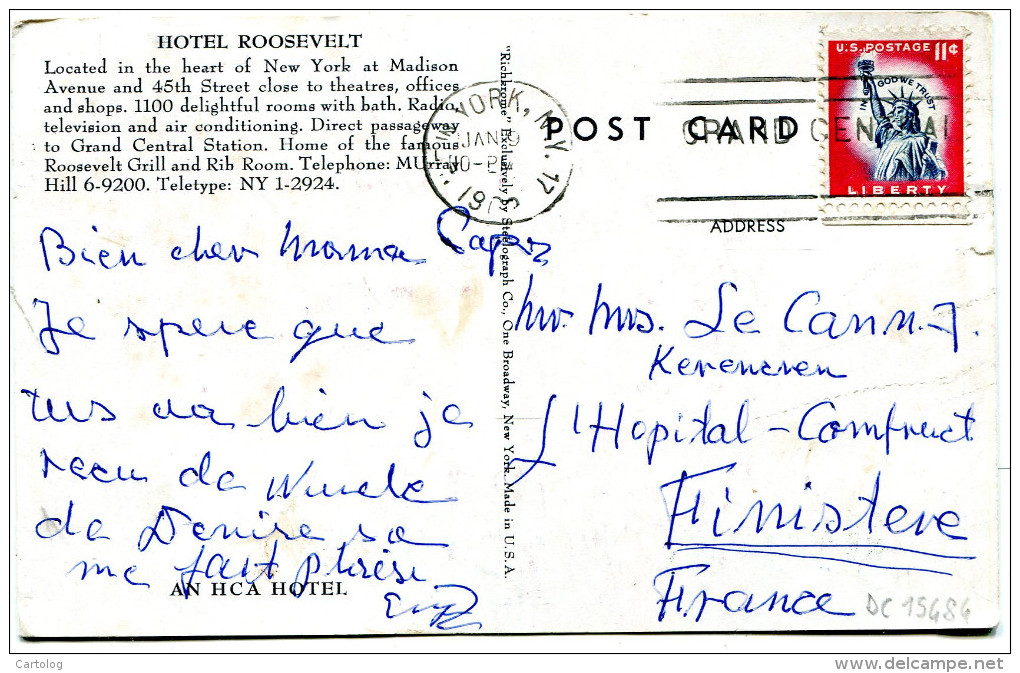 HOTEL ROOSEVELT
Located in the heart of New York at Madison
Avenue and 45th Street close to theatres, offices
and shops. 1100 delightful rooms with bath. Radio,
television and air conditioning. Direct passageway
to Grand Central Station. Home of the famous
Roosevelt Grill and Rib Room. Telephone: MUrray
Hill 6-9200. Teletype: NY 1-2924.
Bien cher Mama
Je spere que
tus va bien je
recu da
da Denise sa
me fait
AN HCA HOTEL
"Richkrome" Exclusively by Steelograph Co., One Broadway, New York. Made in U. S. A.
NEW YORK, N.Y. 17
JAN 9
POST CARD
GRAND CENTRAL
U.S. POSTAGE 11¢
IN GOD WE TRUST
LIBERTY
ADDRESS
Mr. Mrs. Le Cann. J.
L'Hopital-Comfruct
Finistere
France
DC 15484
Cartolog
www.delcampe.net